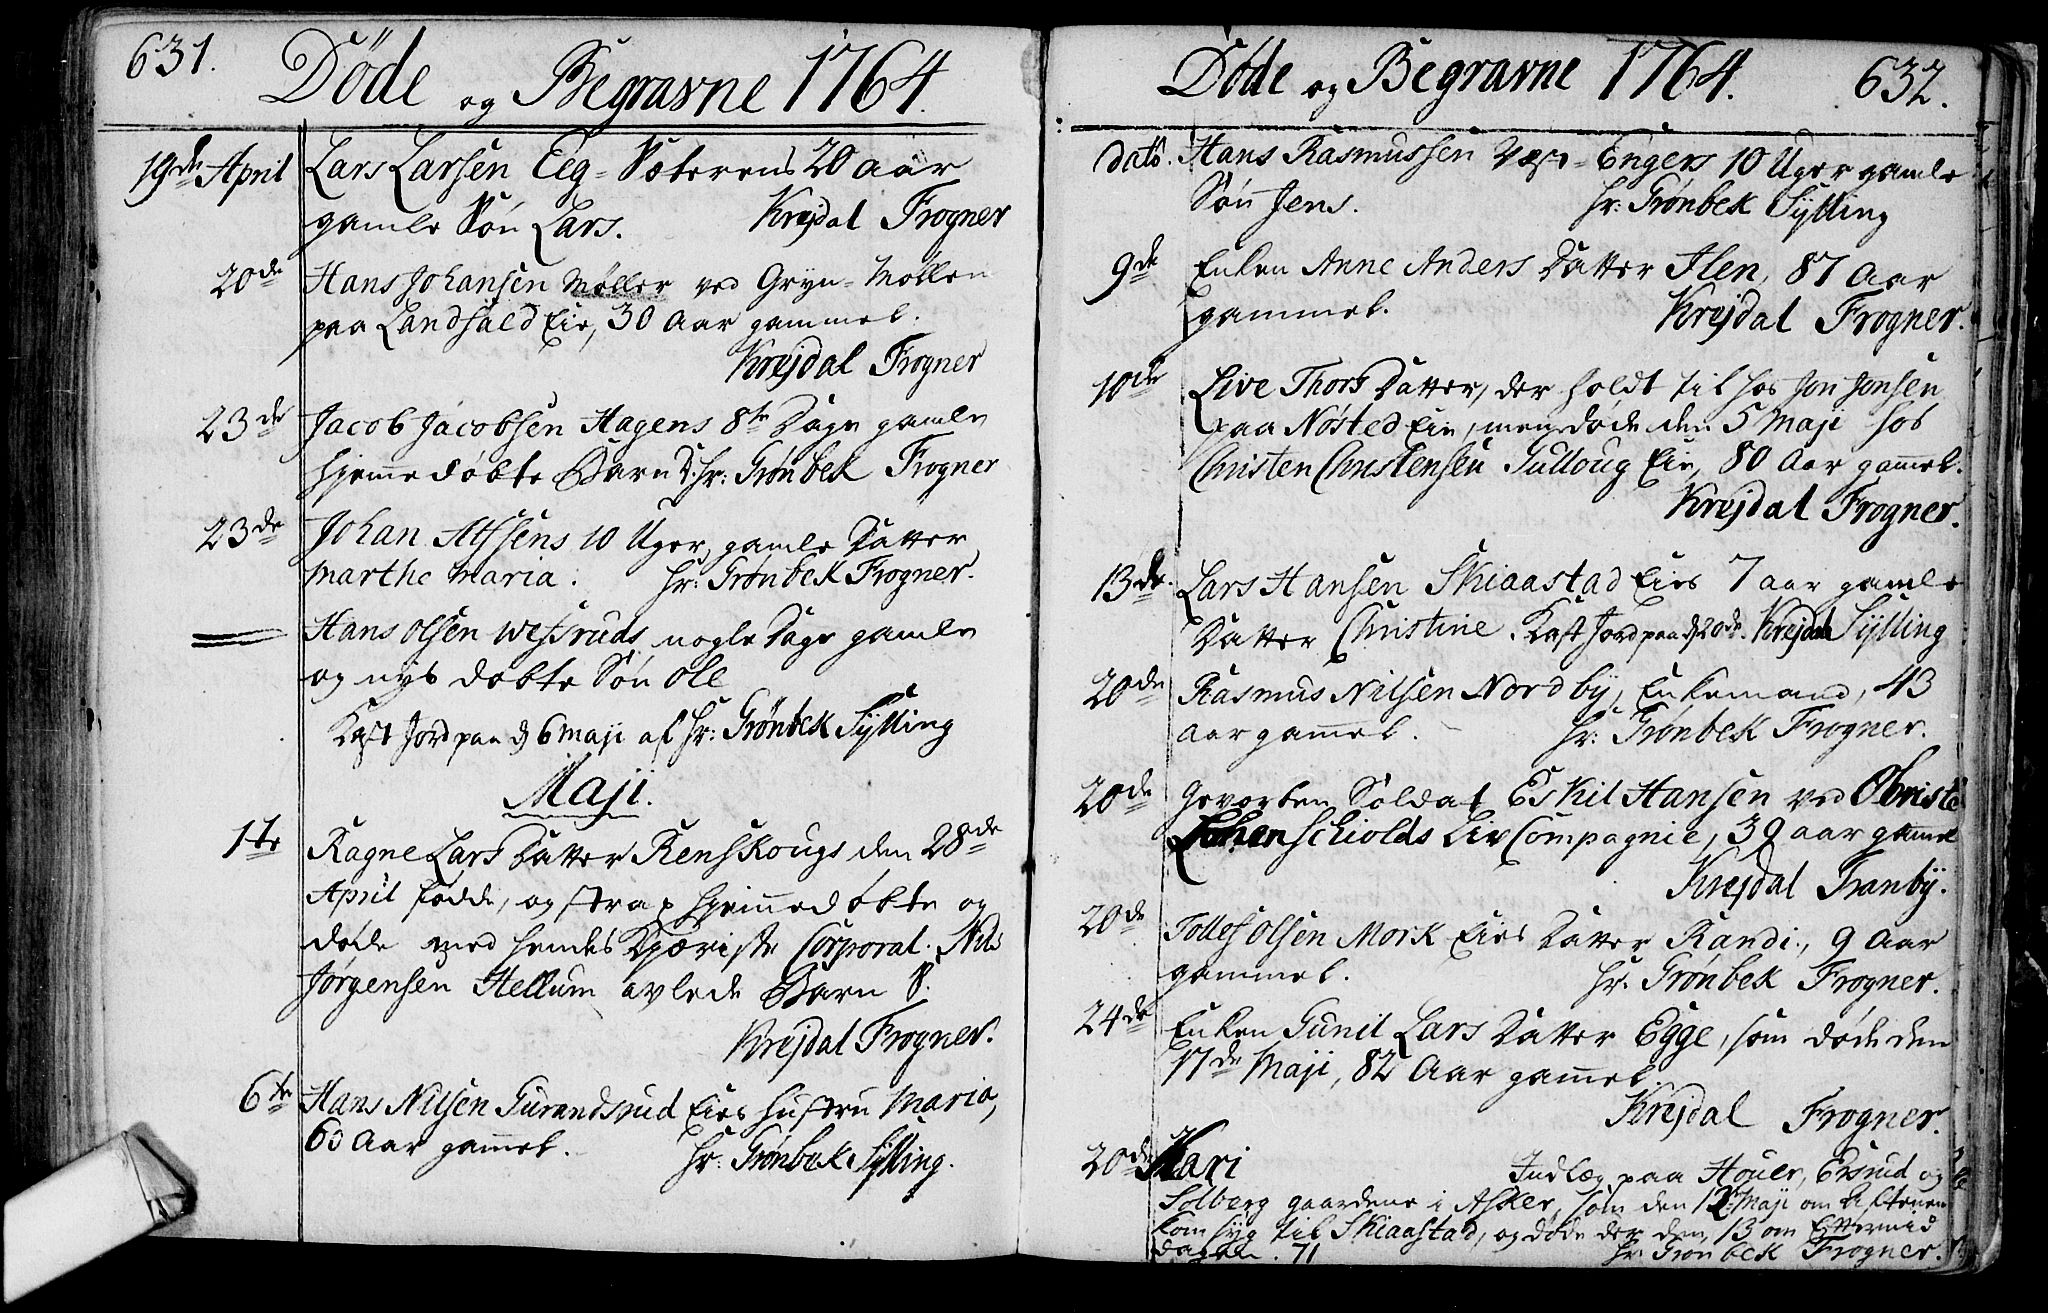 631.
Døde og Begravne 1764.
19de April Lars Larsen Eeg-Sæterens 20 aar
gamle Søn Lars. Krejdal Frogner
20de Hans Johansen Møller ved Gryn-Møllen
paa Landfald Eie, 30 Aar gammel.
Krejdal Frogner
23de Jacob Jacobsen Hagens 8te Dage gamle
hjemedøbte Barn D. hr: Grønbek Frogner
23de Johan Alfsens 10 Uger gamle Datter
Marthe Maria. hr: Grønbek Frogner.
Hans Olsen Wefsruds nogle Dage gamle
og nys døbte Søn Ole
Kast Jord paa d 6 Maji af hr: Grønbek Sylling
Maji.
1te Ragne Lars Datter Renskougs den 28de
April fødde, og strax hjemmedøbte og
døde med hendes Kjæriste Corporal Nils
Jørgensen Hellum avlede Barn S.
Krejdal Frogner.
6te Hans Nilsen Gurandsrud Eies Hustru Maria,
60 Aar gamel. hr: Grønbek Sylling.
Døde og Begravne 1764. 632.
dato. Hans Rasmussen Vest-Engers 10 Uger gamle
Søn Jens. hr: Grønbek Sylling
9de Enken Anne Anders Datter Ilen, 87 Aar
gammel. Krejdal Frogner.
10de Live Thors Datter, der holdt til hos Jon Jonsen
paa Nøsted Eie, men døde den 5 Maji hos
Christen Christensen Gulloug Eie, 80 Aar gamel.
Krejdal Frogner.
13de. Lars Hansen Skiaastad Eies 7 aar gamle
Datter Christine. Kast Jord paa d 20de. Krejdal Sylling
20de Rasmus Nilsen Nordby, Enkemand, 43
Aar gamel. hr: Grønbek Frogner.
20de Gevorben Soldat Eskil Hansen ved Obriste
Lohenschiolds Liv Compagnie, 39 aar gamel
Krejdal Tranby.
20de Tollef Olsen Mork Eies Datter Randi., 9 Aar
gammel. hr. Grønbek Frogner.
24de Enken Gunil Lars Datter Egge, som døde den
17de Maji, 82 Aar gamel.
Krejdal Frogner.
20de Kari Indlæg paa Houer, Ersrud og
Solberg gaardene i Asker, som den 12 Maji om Aftenen
kom syg til Skiaastad, og døde der den 13 om Eftermid
dagen. 71 hr: Grønbek Frogner.